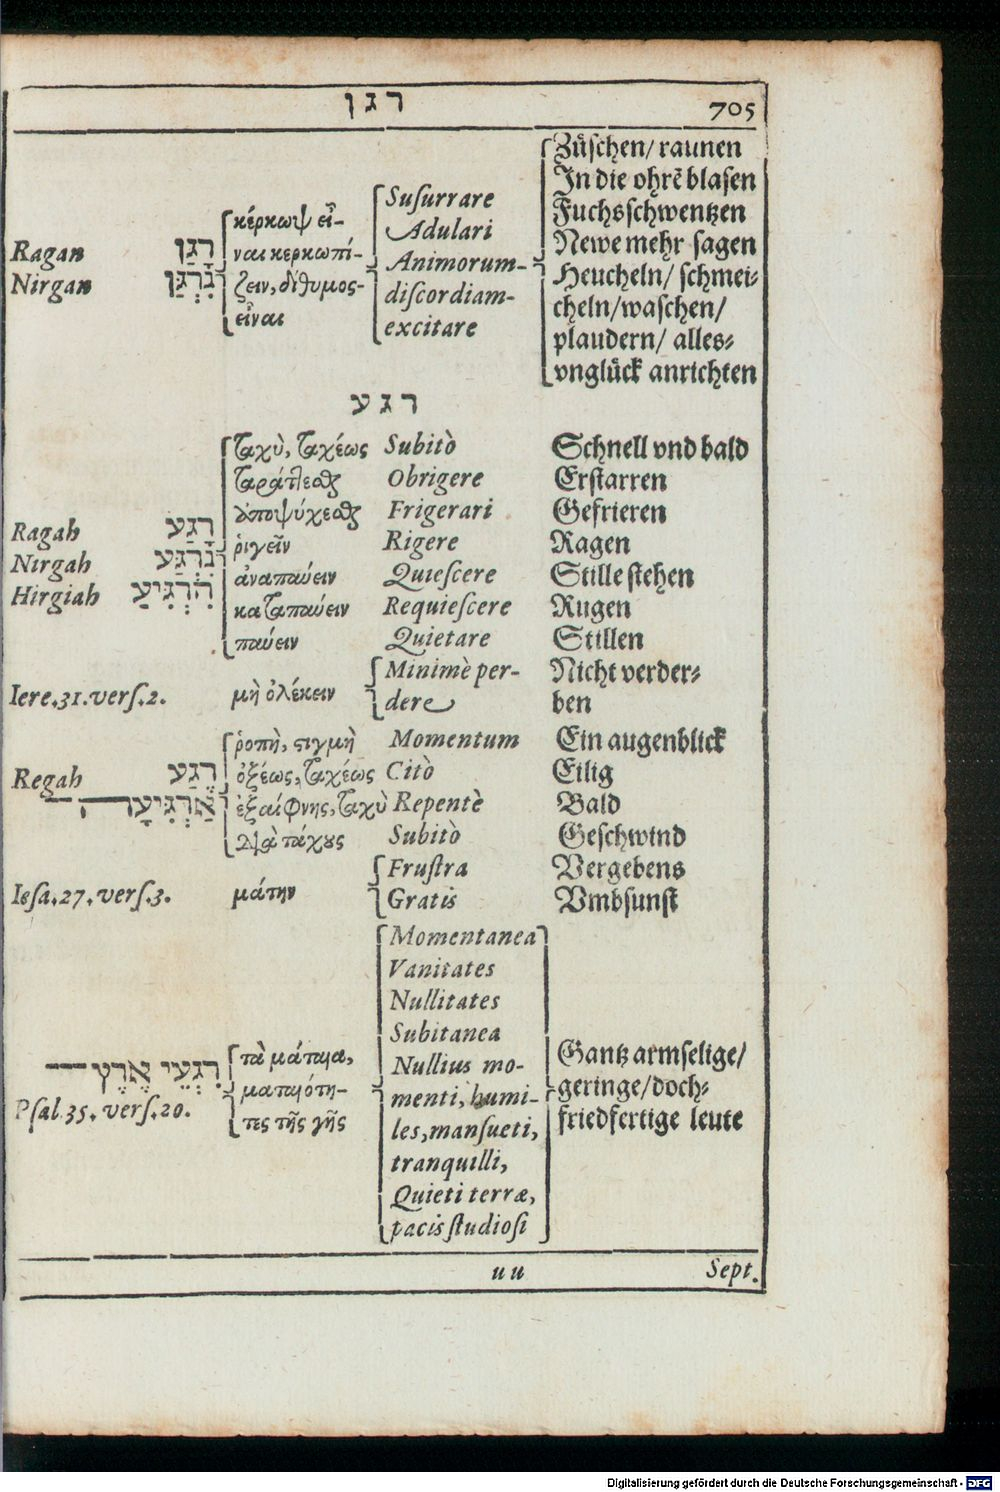 רגן 705
Ragan רָגַן κέρκωψ εἶ- Susurrare Züschen/ raunen
Nirgan נִרְגַּן ναι κερκωπί- Adulari In die ohrẽ blasen
ζειν, δίθυμος- Animorum- Fuchsschwentzen
εἶναι discordiam- Newe mehr sagen
excitare Heucheln/ schmei-
cheln/waschen/
plaudern/ alles-
vnglück anrichten
רגע
Ragah רָגַע ταχὺ, ταχέως Subitò Schnell vnd bald
Nirgah נִרְגַּע ταράττεσθαι Obrigere Erstarren
Hirgiah הִרְגִּיעַ ἀποψύχεσθαι Frigerari Gefrieren
ῥιγεῖν Rigere Ragen
ἀναπαύειν Quiescere Stille stehen
καταπαύειν Requiescere Rugen
παύειν Quietare Stillen
Iere.31.vers.2. μὴ ὀλέκειν Minimè per- Nicht verder-
dere ben
Regah רֶגַע ῥοπὴ, στιγμὴ Momentum Ein augenblick
אַרְגִּיעָה ὀξέως, ταχέως Citò Eilig
ἐξαίφνης, ταχὺ Repentè Bald
διὰ τάχους Subitò Geschwind
Iesa.27.vers.3. μάτην Frustra Vergebens
Gratis Vmbsunst
רִגְעֵי אֶרֶץ τὰ μάταια, Momentanea Gantz armselige/
Psal.35.vers.20. ματαιότη- Vanitates geringe/doch-
τες τῆς γῆς Nullitates friedfertige leute
Subitanea
Nullius mo-
menti, humi-
les, mansueti,
tranquilli,
Quieti terræ,
pacis studiosi
uu Sept.
Digitalisierung gefördert durch die Deutsche Forschungsgemeinschaft - DFG